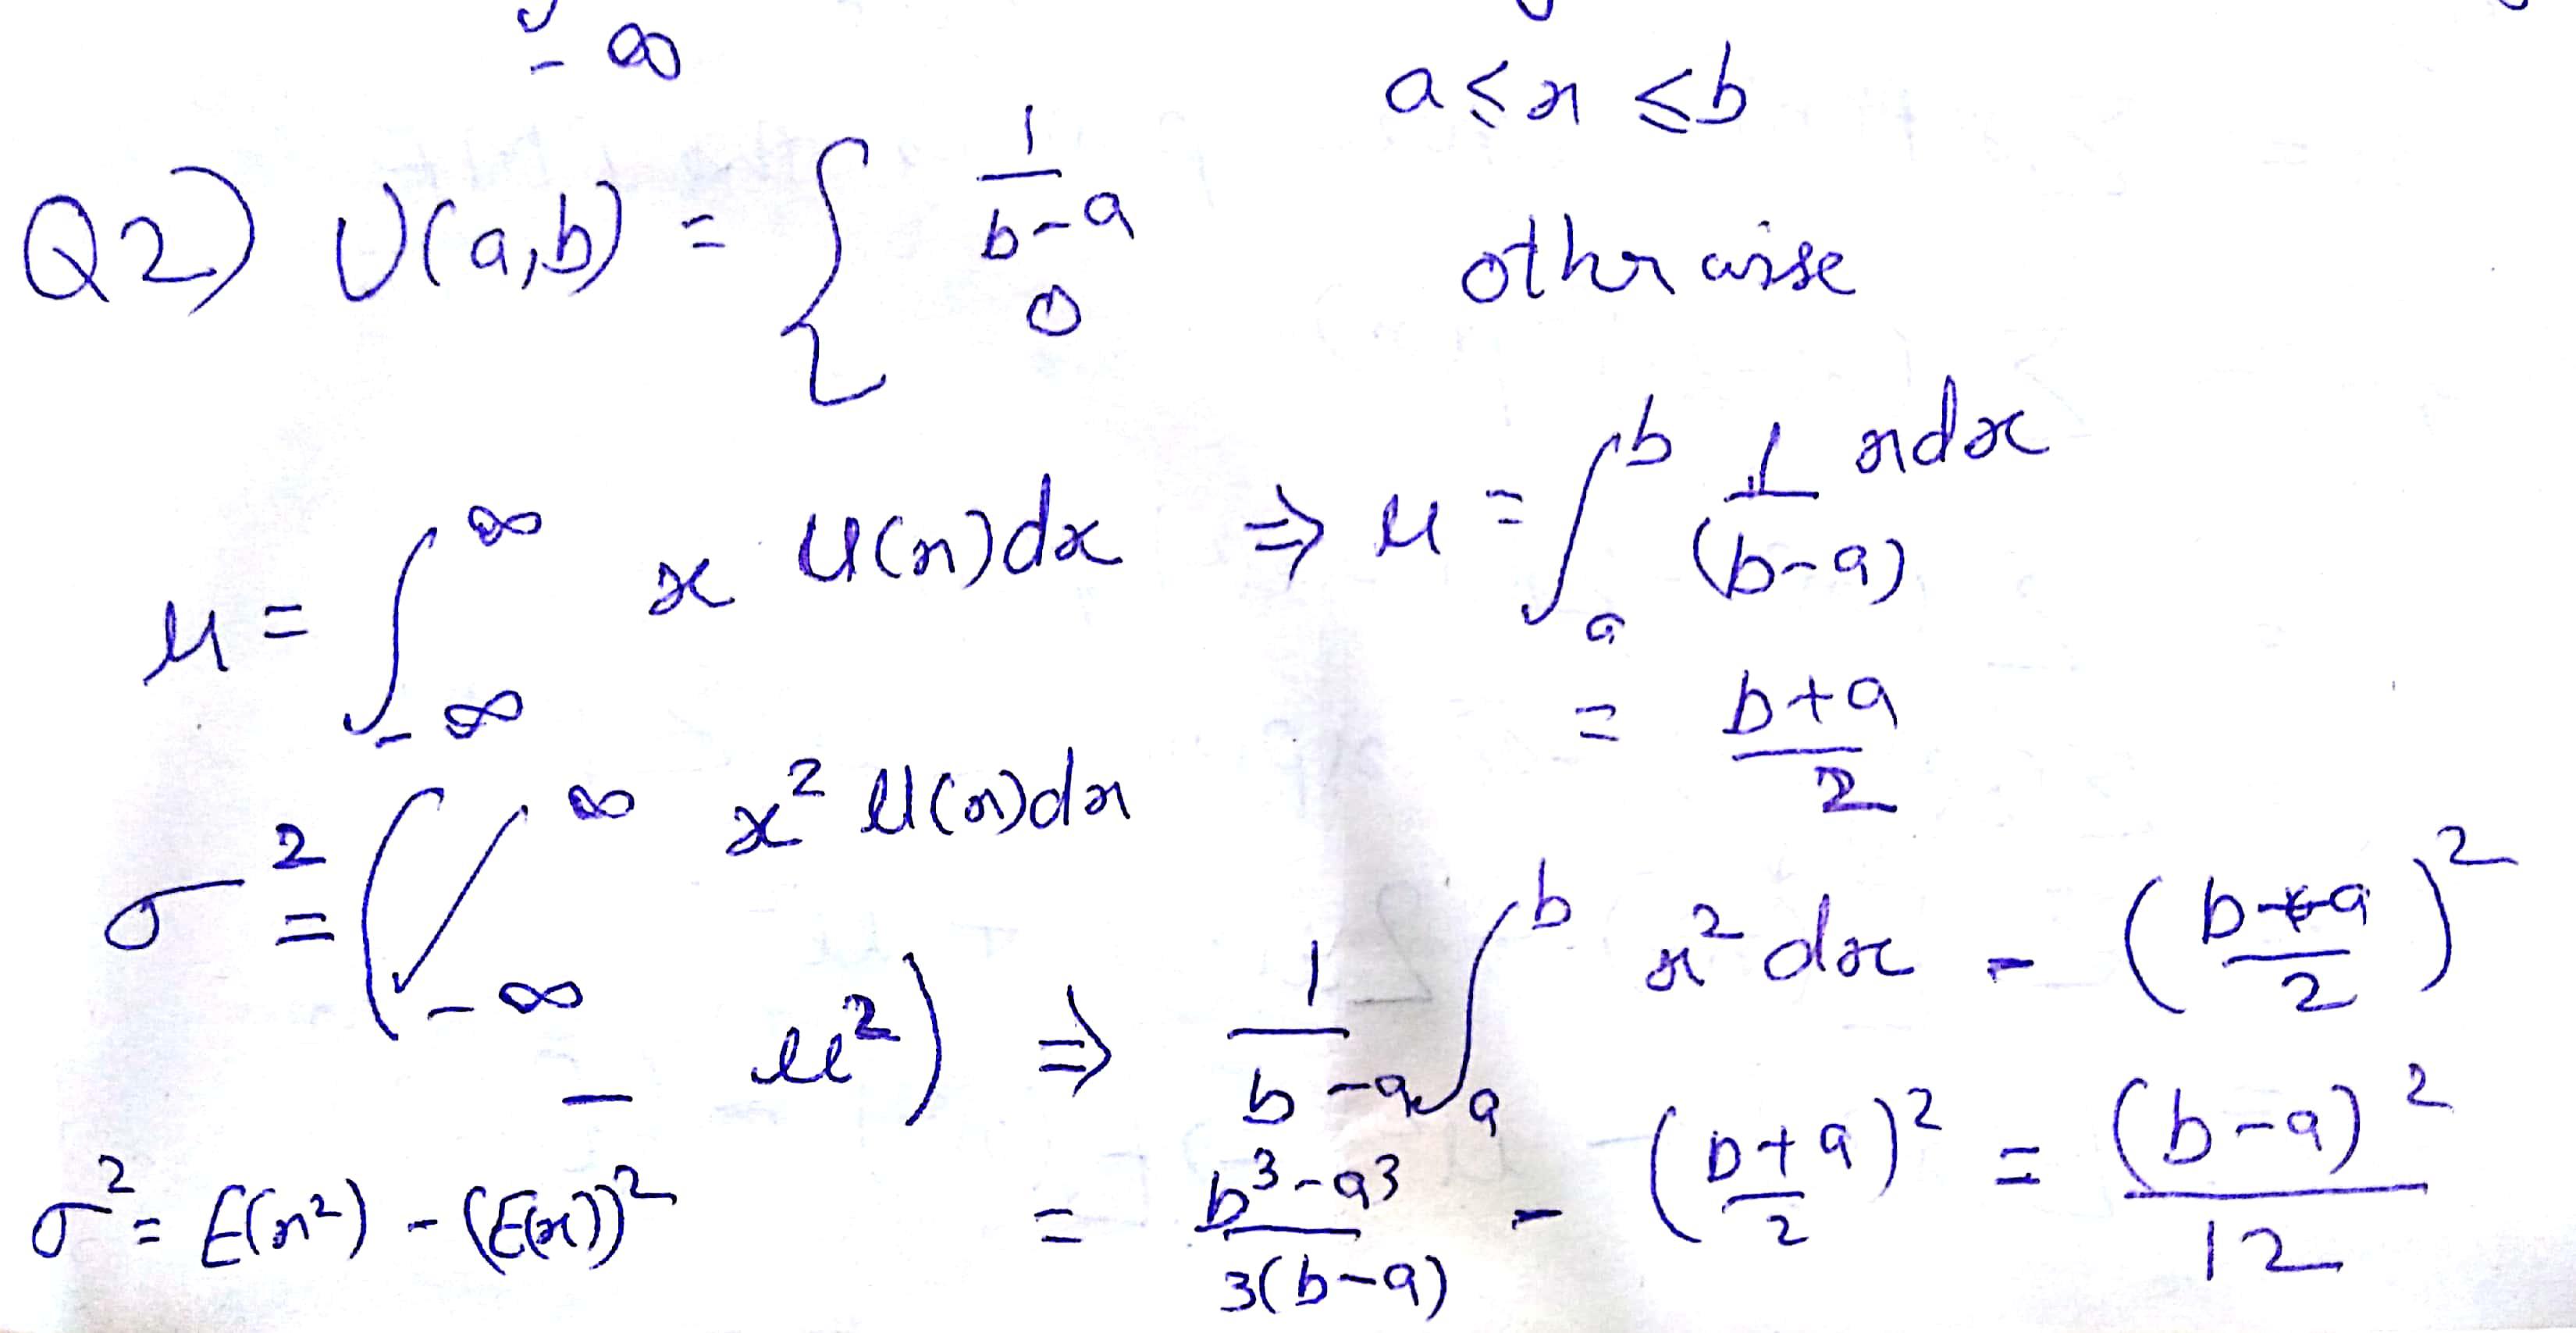 - ∞
a ≤ x ≤ b
Q2) U(a,b) = { 1/(b-a)
0 otherwise
μ = ∫_{-∞}^{∞} x U(x)dx ⇒ μ = ∫_a^b 1/(b-a) x dx
= (b+a)/2
σ² = ( ∫_{-∞}^{∞} x² U(x)dx
- μ² ) ⇒ 1/(b-a) ∫_a^b x² dx - ((b+a)/2)²
σ² = E(x²) - (E(x))² = (b³-a³)/(3(b-a)) - ((b+a)/2)² = (b-a)²/12